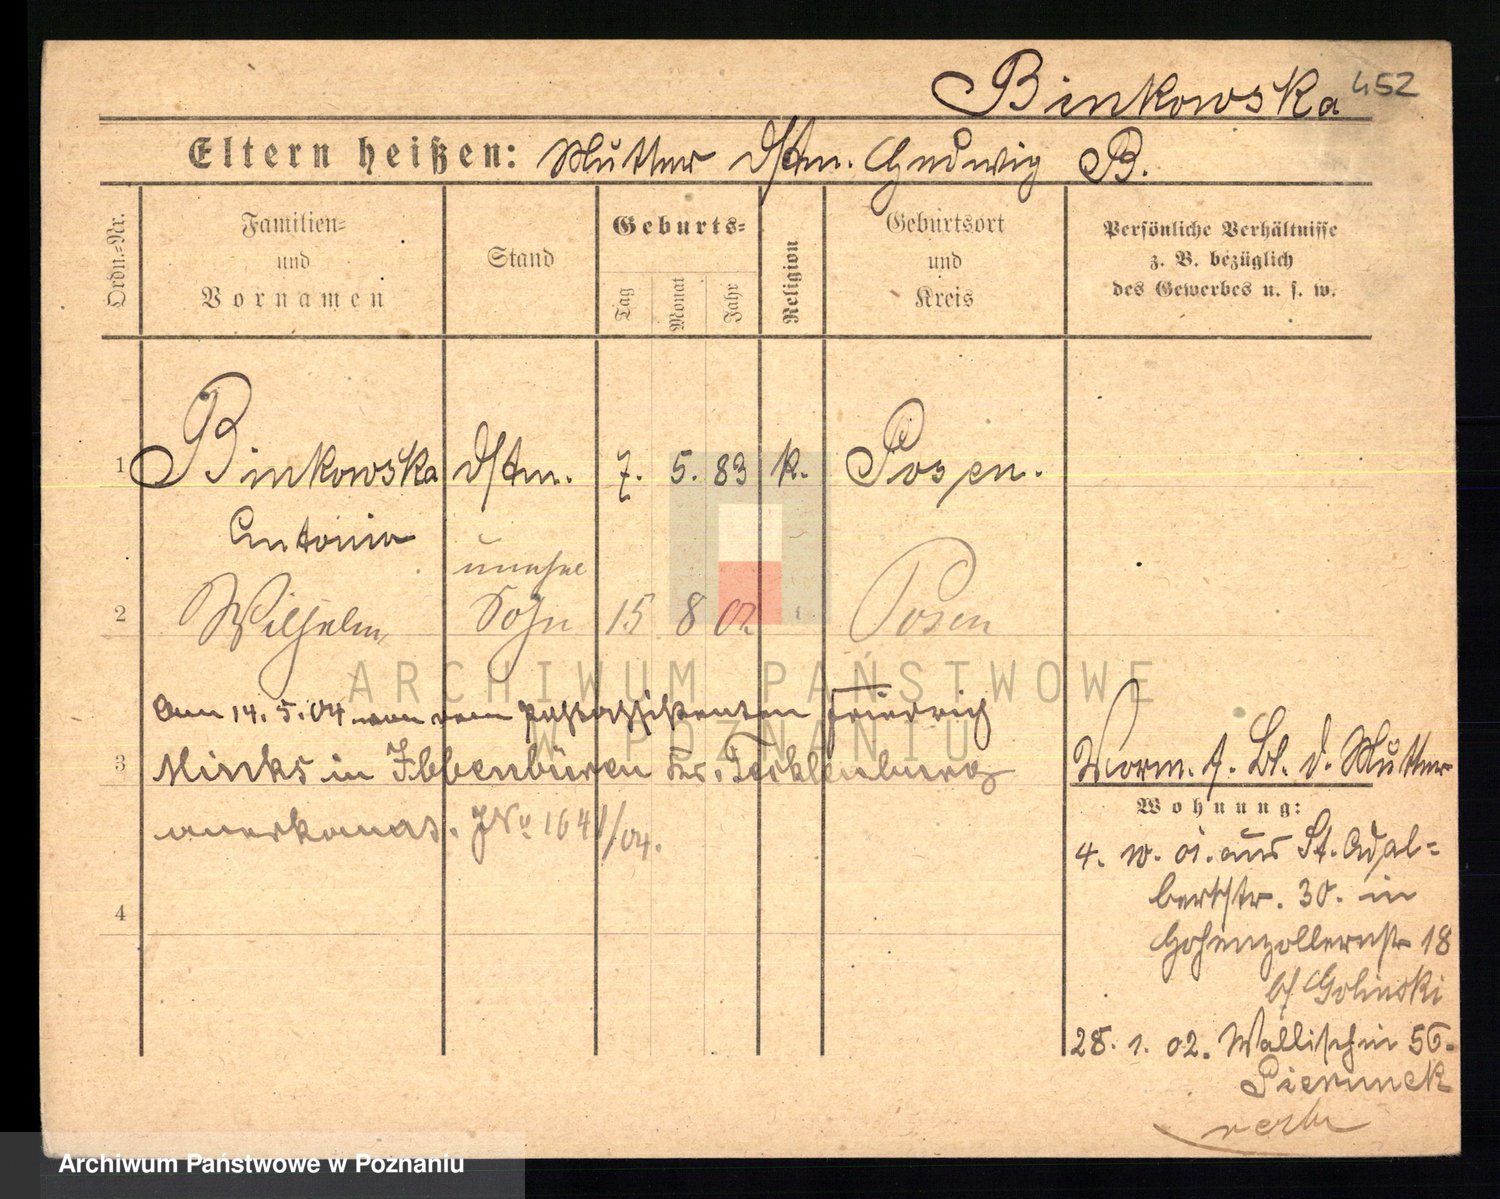 Binkowska 452
Eltern heißen: Mutter Dstm. Hedwig B.
Ordn.-Nr.
Familien-
und
Vornamen
Stand
Geburts-
Tag
Monat
Jahr
Religion
Geburtsort
und
Kreis
Persönliche Verhältnisse
z. B. bezüglich
des Gewerbes u. s. w.
1 Binkowska Dstm. 7. 5. 83 k. Posen.
Antonia
unehel
2 Wilhelm Sohn 15 8 02 Posen
ARCHIWUM PAŃSTWOWE
W POZNANIU
Am 14.5.04 von dem Postassistenten Friedrich
3 Minks in Ibbenbüren Krs. Tecklenburg
anerkannt. JNo 1641/04.
4
Vorm. s. Bl. d. Mutter
Wohnung:
4. 10. 01. aus St. Adal-
bertstr. 30. in
Hohenzollernstr 18
b/ Golinski
28. 1. 02. Wallischei 56.
Pierunek
Archiwum Państwowe w Poznaniu